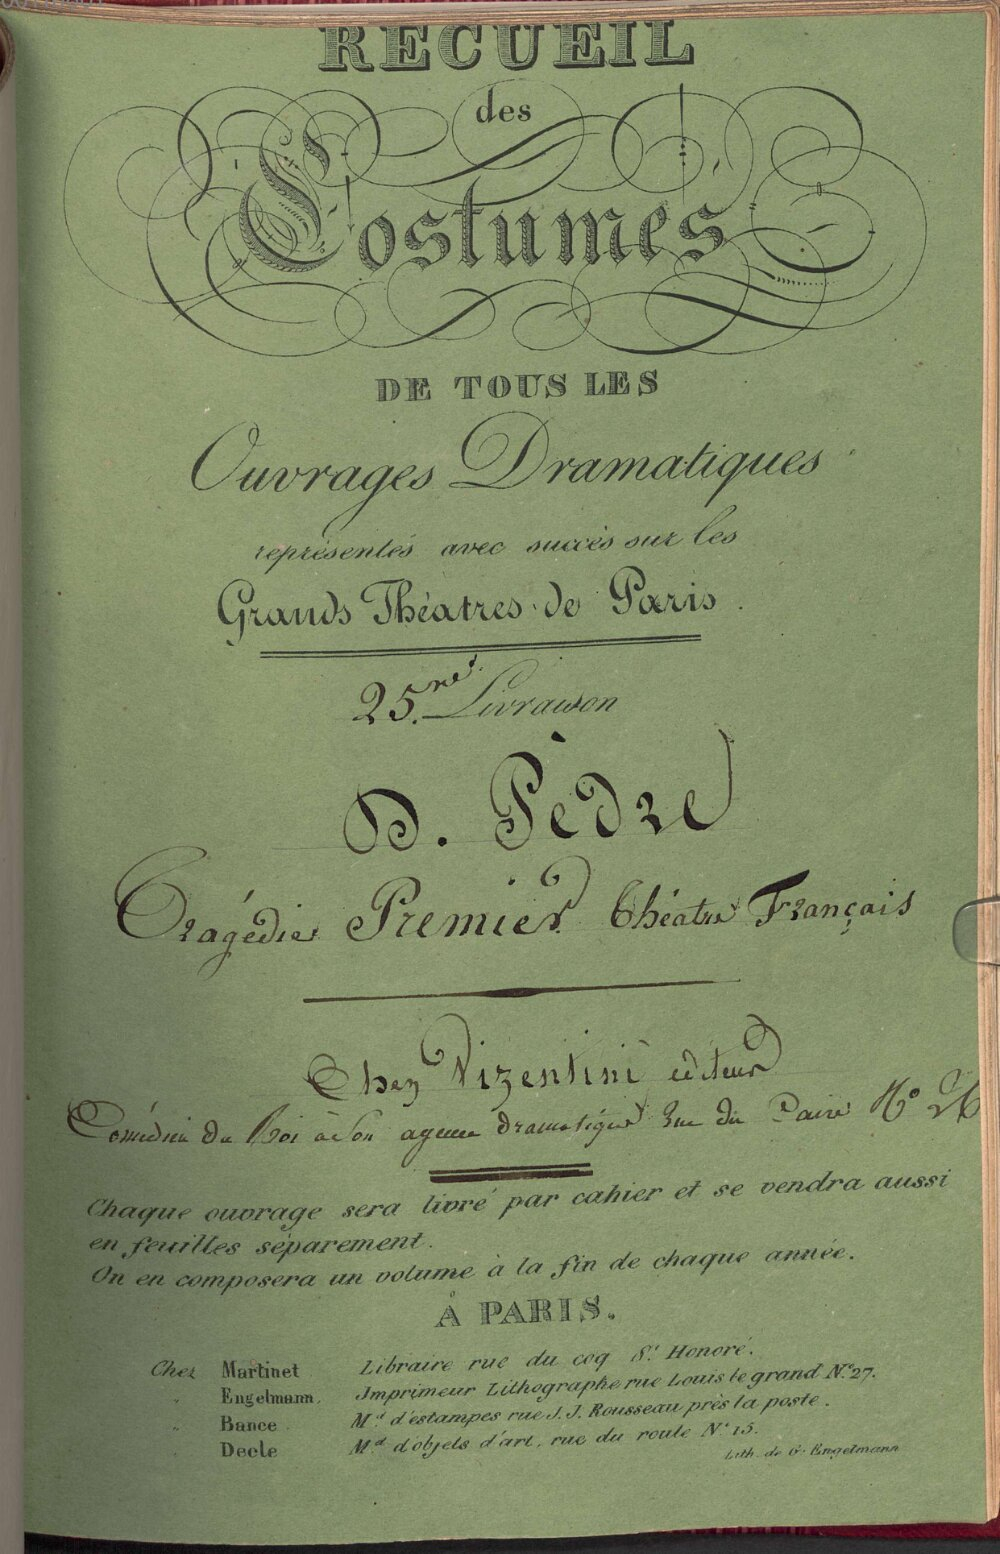 RECUEIL
des
Costumes
DE TOUS LES
Ouvrages Dramatiques
représentés avec succès sur les
Grands Théatres de Paris.
25.me Livraison
D. Pèdre
Tragédie Premier Théatre Français
Chez Vizentini éditeur
Comédien du Roi à son agence dramatique Rue du No
Chaque ouvrage sera livré par cahier et se vendra aussi
en feuilles séparement.
On en composera un volume à la fin de chaque année.
À PARIS.
Chez Martinet Libraire rue du coq St. Honoré.
" Engelmann. Imprimeur Lithographe rue Louis le grand No. 27.
" Bance Md. d'estampes rue J. J. Rousseau près la poste.
" Decle Md. d'objets d'art, rue du roule No. 15.
Lith. de G. Engelmann